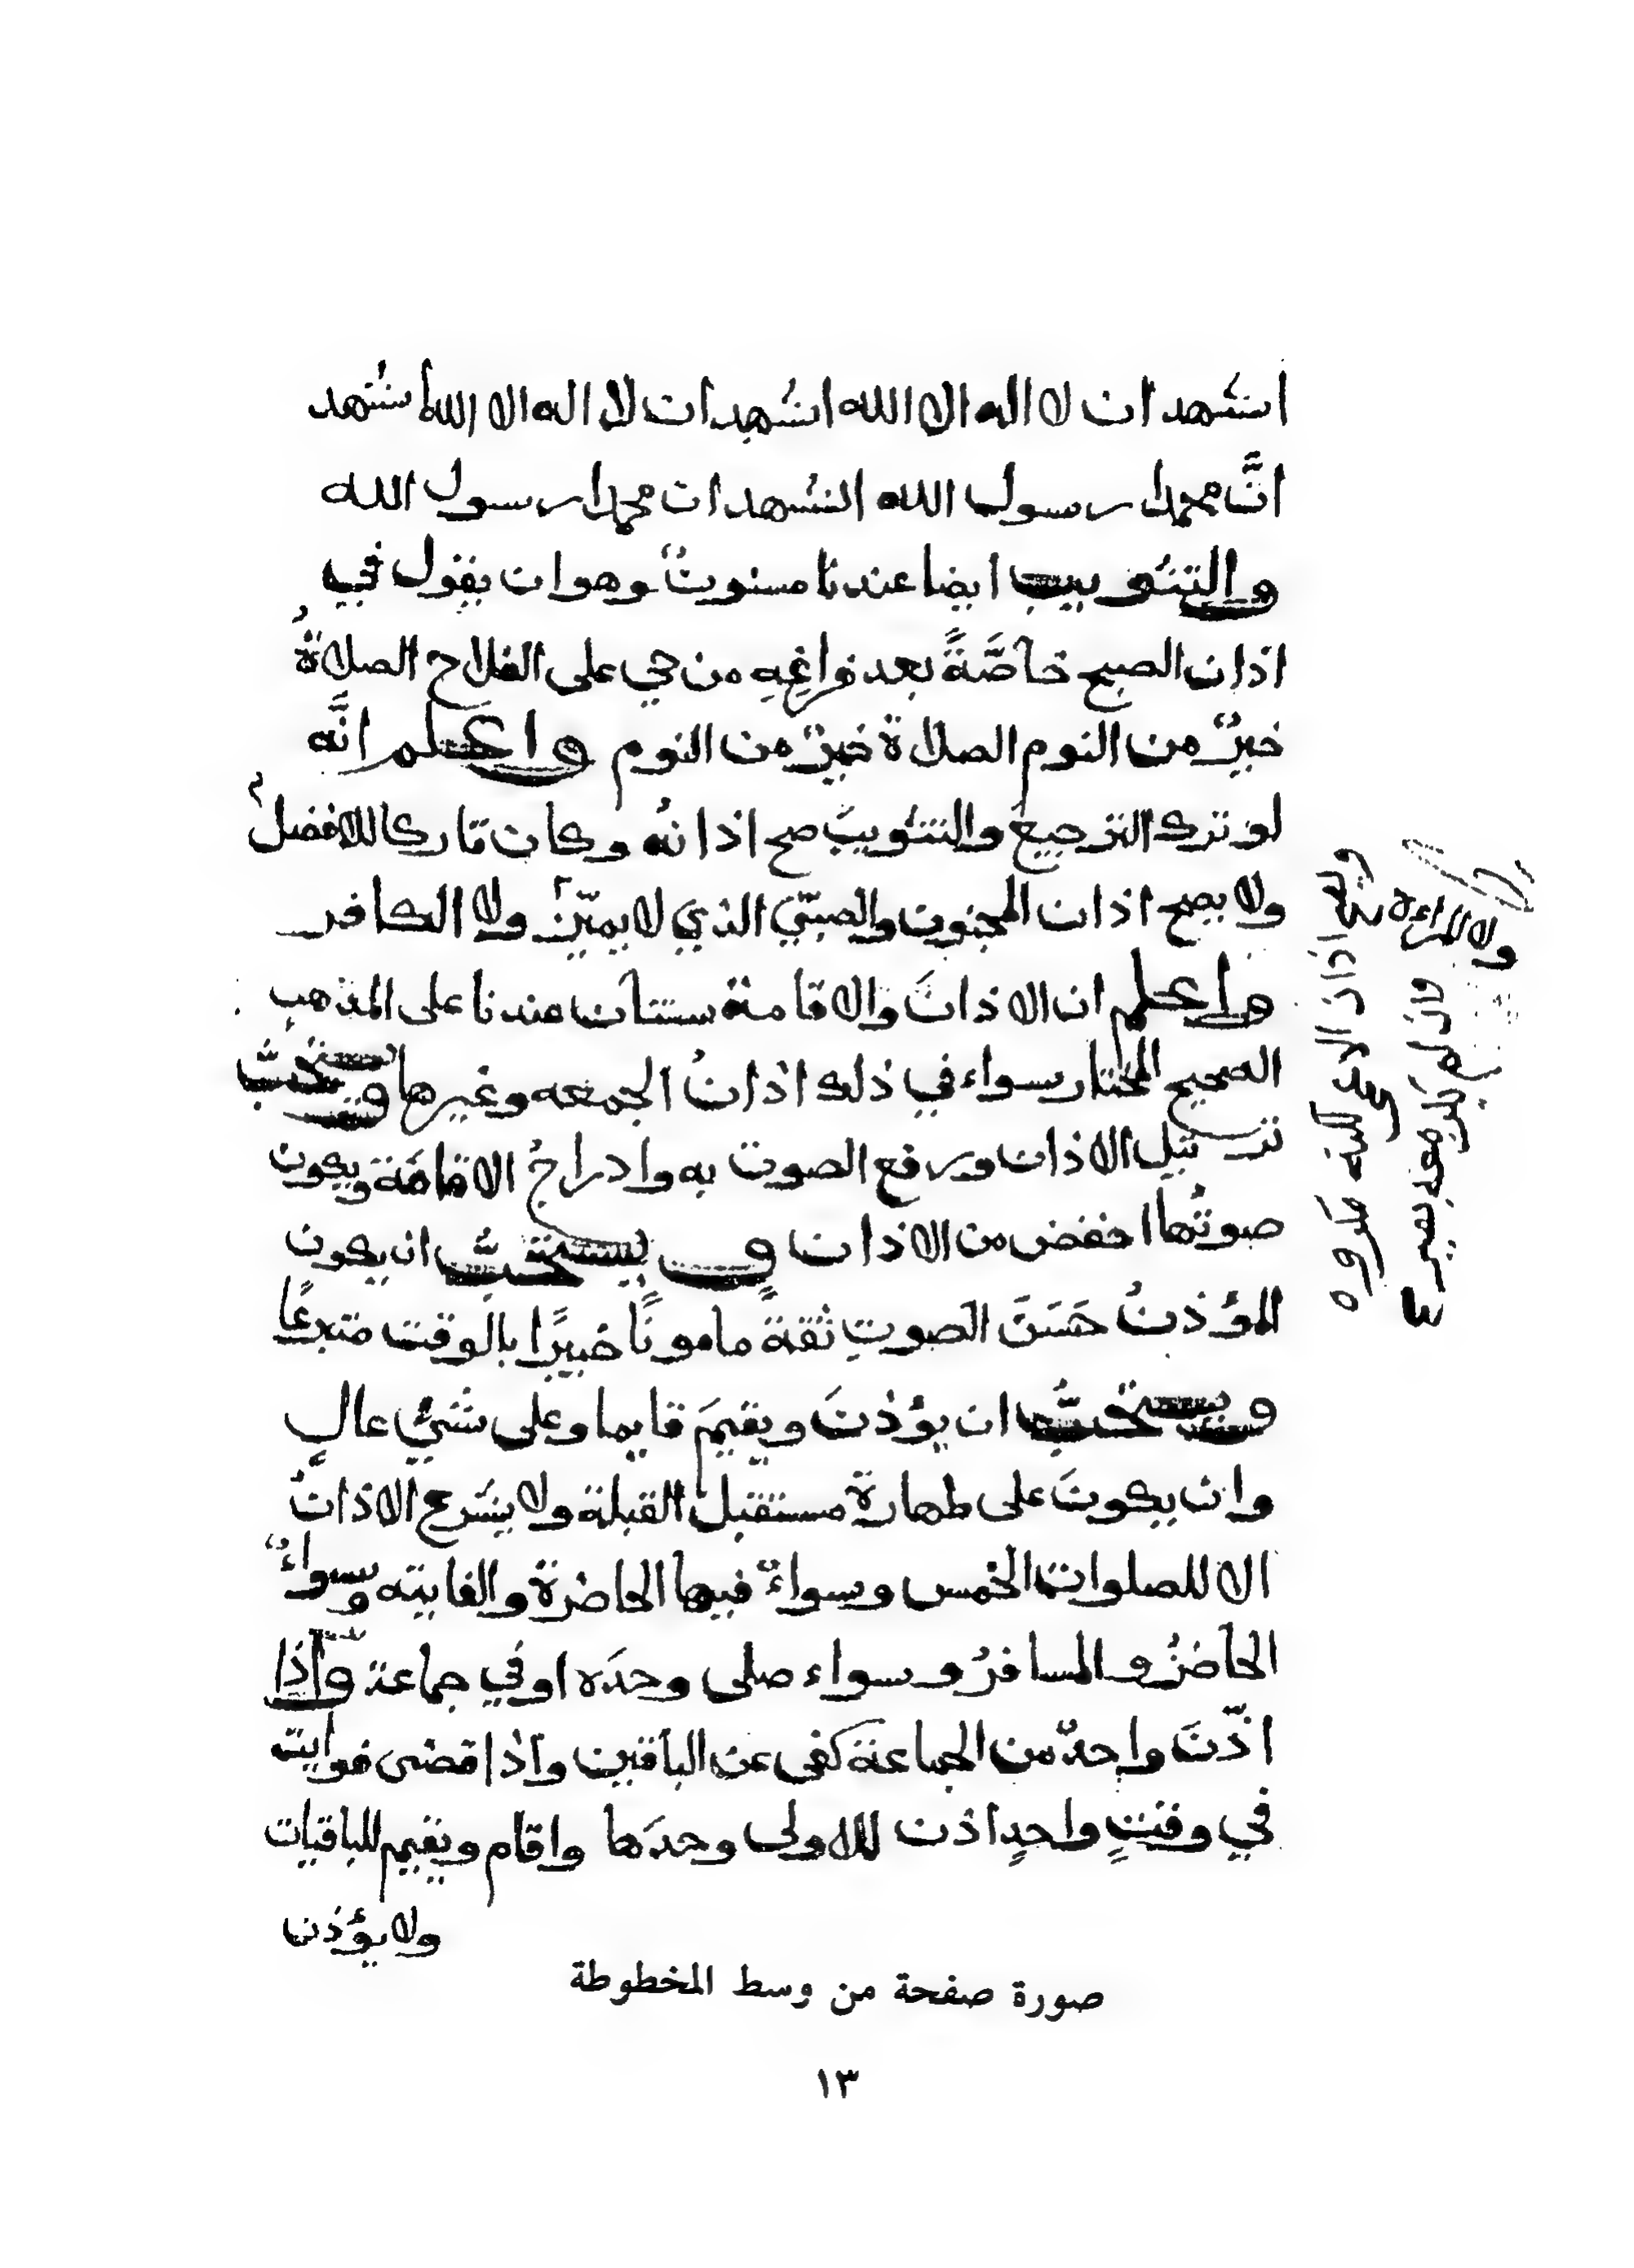 اشهد ان لا اله الا الله اشهد ان لا اله الا الله أشهد
انَّ محمدا رسول الله اشهد ان محمدا رسول الله
والتثويب ايضا عندنا مسنونٌ وهو ان يقول في
اذان الصبح خاصَّةً بعد فراغِهِ من حي على الفلاح الصلاةُ
خيرٌ من النوم الصلاة خيرٌ من النوم واعلم انَّه
لو ترك الترجيعَ والتثويبَ صح اذانُه وكان تاركا للافضل
ولا يصح اذان المجنون والصبيّ الذي لا يميّز ولا الكافر
واعلم ان الاذانَ والاقامة سنتان عندنا على المذهب
الصحيح المختار سواء في ذلك اذانُ الجمعه وغيرها ويستحبُّ
ترتيل الاذان ورفع الصوت به وادراجُ الاقامَة ويكون
صوتُها اخفض من الاذان ويستحبُّ ان يكون
المؤذنُ حَسَنَ الصوتِ ثقةً مامونًا خبيرًا بالوقت متبرعًا
ويستحبُّ ان يؤذنَ ويقيمَ قايما وعلى شئٍ عالٍ
وان يكونَ على طهارة مستقبل القبلة ولا يشرع الاذانُ
الا للصلوات الخمس وسواءٌ فيها الحاضرة والفايته وسواءٌ
الحاضرُ والمسافرُ وسواء صلى وحدَه او في جماعة واذا
اذّنَ واحدٌ من الجماعة كفى عن الباقين واذا قضى فوايت
في وقتٍ واحدٍ اذن للاولى وحدَها واقام ويقيم للباقيات
ولا يؤذن
ولا المراءة
اذان الاعمى لكنه مكروه
وان لم يكن معه بصير
صورة صفحة من وسط المخطوطة
١٣